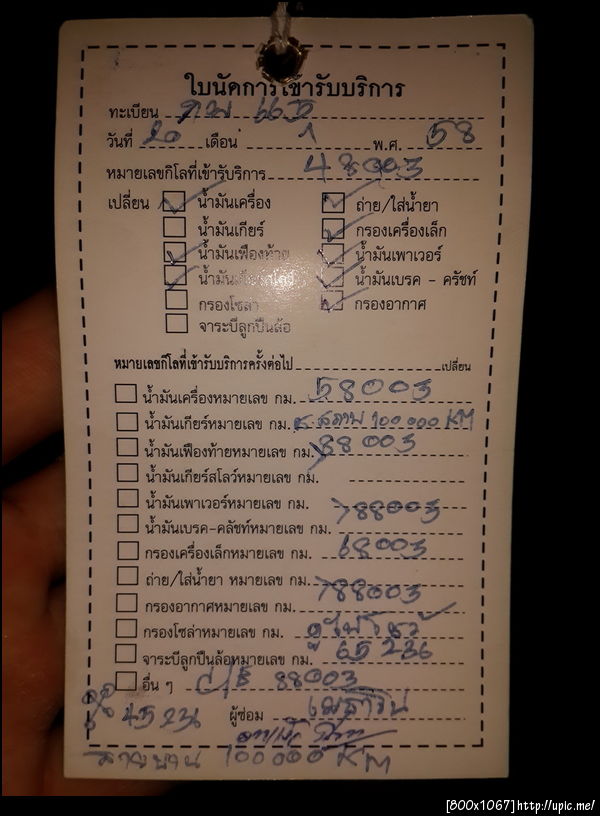 ใบนัดการเข้ารับบริการ
ทะเบียน
วันที่ 20 เดือน 1 พ.ศ. 58
หมายเลขกิโลที่เข้ารับบริการ 48003
เปลี่ยน น้ำมันเครื่อง ถ่าย/ใส่น้ำยา
น้ำมันเกียร์ กรองเครื่องเล็ก
น้ำมันเฟืองท้าย น้ำมันเพาเวอร์
น้ำมันเกียร์สโลว์ น้ำมันเบรค - ครัชท์
กรองโซล่า กรองอากาศ
จาระบีลูกปืนล้อ
หมายเลขกิโลที่เข้ารับบริการครั้งต่อไป เปลี่ยน
น้ำมันเครื่องหมายเลข กม. 58003
น้ำมันเกียร์หมายเลข กม. สภาพ 100000 KM
น้ำมันเฟืองท้ายหมายเลข กม. 88003
น้ำมันเกียร์สโลว์หมายเลข กม.
น้ำมันเพาเวอร์หมายเลข กม. 88003
น้ำมันเบรค-คลัชท์หมายเลข กม.
กรองเครื่องเล็กหมายเลข กม. 68003
ถ่าย/ใส่น้ำยา หมายเลข กม. 88003
กรองอากาศหมายเลข กม.
กรองโซล่าหมายเลข กม. ดูไฟโชว์
จาระบีลูกปืนล้อหมายเลข กม. 65236
อื่น ๆ 88003
45236 ผู้ซ่อม
สายพาน 100000 KM
[800x1067] http://upic.me/